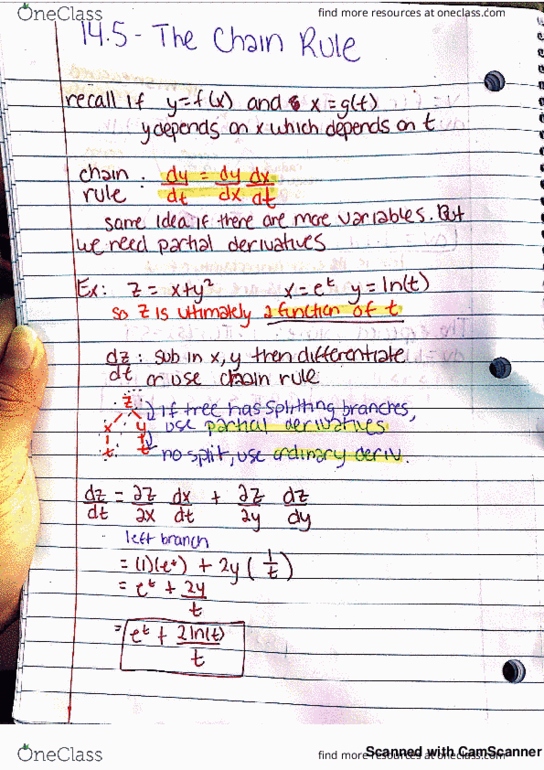 OneClass
find more resources at oneclass.com
14.5 - The Chain Rule
recall if y=f(x) and x=g(t)
y depends on x which depends on t
chain rule : dy/dt = dy/dx dx/dt
same idea if there are more variables. But
we need partial derivatives
Ex: z = x+y² x=eᵗ y=ln(t)
so z is ultimately a function of t
dz/dt : sub in x, y then differentiate
or use chain rule
z
x y
t t
if tree has splitting branches,
use partial derivatives
no split, use ordinary deriv.
dz/dt = ∂z/∂x dx/dt + ∂z/∂y dz/dy
left branch
= (1)(eᵗ) + 2y (1/t)
= eᵗ + 2y/t
= eᵗ + 2ln(t)/t
OneClass
find more resources at oneclass.com
Scanned with CamScanner